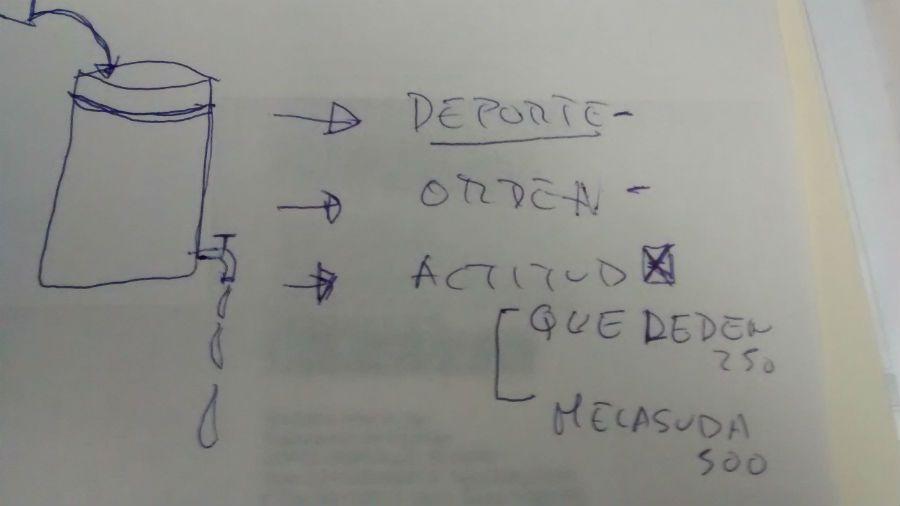 DEPORTE-
ORDEN -
ACTITUD
QUE DEDEN
250
MECASUDA
500